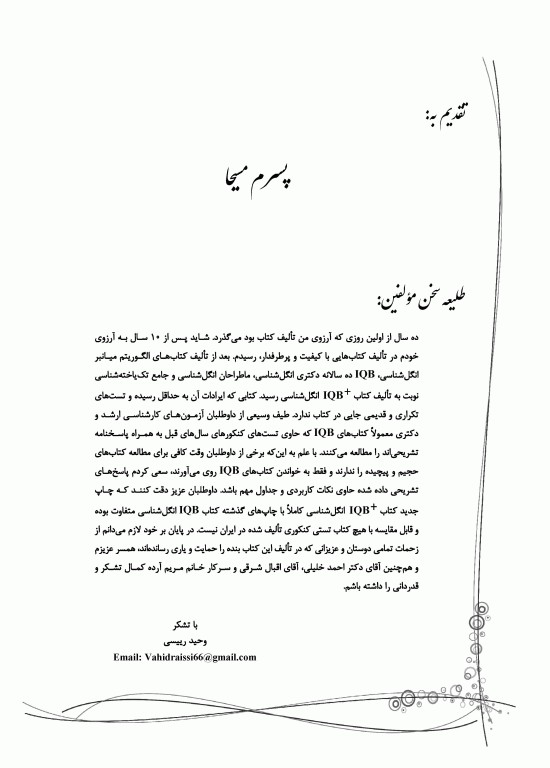 تقدیم به:
پسرم مسیحا
طلیعه سخن مؤلفین:
ده سال از اولین روزی که آرزوی من تألیف کتاب بود می‌گذرد. شاید پس از ۱۰ سال به آرزوی
خودم در تألیف کتاب‌هایی با کیفیت و پرطرفدار، رسیدم. بعد از تألیف کتاب‌های الگوریتم میانبر
انگل‌شناسی، IQB ده سالانه دکتری انگل‌شناسی، ماطراحان انگل‌شناسی و جامع تک‌یاخته‌شناسی
نوبت به تألیف کتاب IQB+ انگل‌شناسی رسید. کتابی که ایرادات آن به حداقل رسیده و تست‌های
تکراری و قدیمی جایی در کتاب ندارد. طیف وسیعی از داوطلبان آزمون‌های کارشناسی ارشد و
دکتری معمولاً کتاب‌های IQB که حاوی تست‌های کنکورهای سال‌های قبل به همراه پاسخنامه
تشریحی‌اند را مطالعه می‌کنند. با علم به این‌که برخی از داوطلبان وقت کافی برای مطالعه کتاب‌های
حجیم و پیچیده را ندارند و فقط به خواندن کتاب‌های IQB روی می‌آورند، سعی کردم پاسخ‌های
تشریحی داده شده حاوی نکات کاربردی و جداول مهم باشد. داوطلبان عزیز دقت کنند که چاپ
جدید کتاب IQB+ انگل‌شناسی کاملاً با چاپ‌های گذشته کتاب IQB انگل‌شناسی متفاوت بوده
و قابل مقایسه با هیچ کتاب تستی کنکوری تألیف شده در ایران نیست. در پایان بر خود لازم می‌دانم از
زحمات تمامی دوستان و عزیزانی که در تألیف این کتاب بنده را حمایت و یاری رسانده‌اند، همسر عزیزم
و هم‌چنین آقای دکتر احمد خلیلی، آقای اقبال شرقی و سرکار خانم مریم آرده کمال تشکر و
قدردانی را داشته باشم.
با تشکر
وحید رییسی
Email: Vahidraissi66@gmail.com